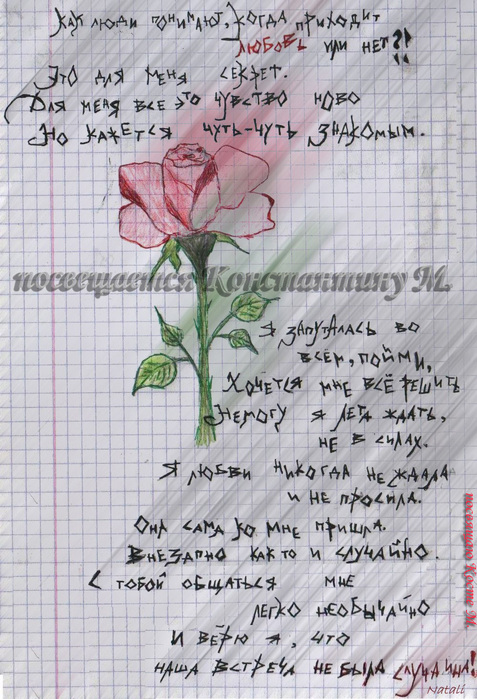 Как люди понимают, когда приходит
любовь или нет?!!
Это для меня секрет.
Для меня все это чувство ново
Но кажется чуть-чуть знакомым.
посвещается Константину М.
Я запуталась во
всём, пойми,
Хочется мне всё решить
Немогу я лета ждать,
не в силах.
Я любви никогда не ждала
и не просила.
Она сама ко мне пришла.
Внезапно как то и случайно.
С тобой общаться мне
легко необычайно
И верю я, что
наша встреча не была случайна!
Natali